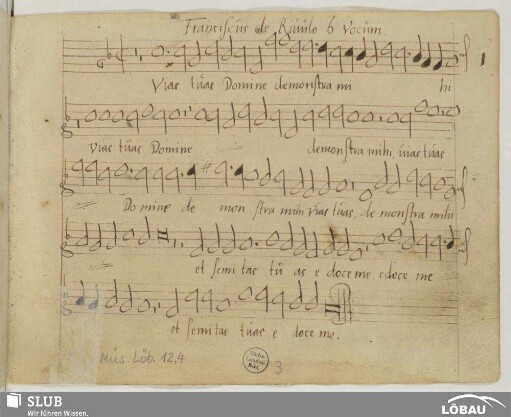 Franciscus de Rivulo 6 Vocum.
1
Vias tuas Domine demonstra mi hi
Vias tuas Domine demonstra mihi, vias tuas
Domine de mon stra mihi vias tuas, de monstra mihi
et semitas tu as e doce me, edoce me
et semitas tuas e doce me.
Mus. Löb. 12,4
3
SLUB
Wir führen Wissen.
LÖBAU